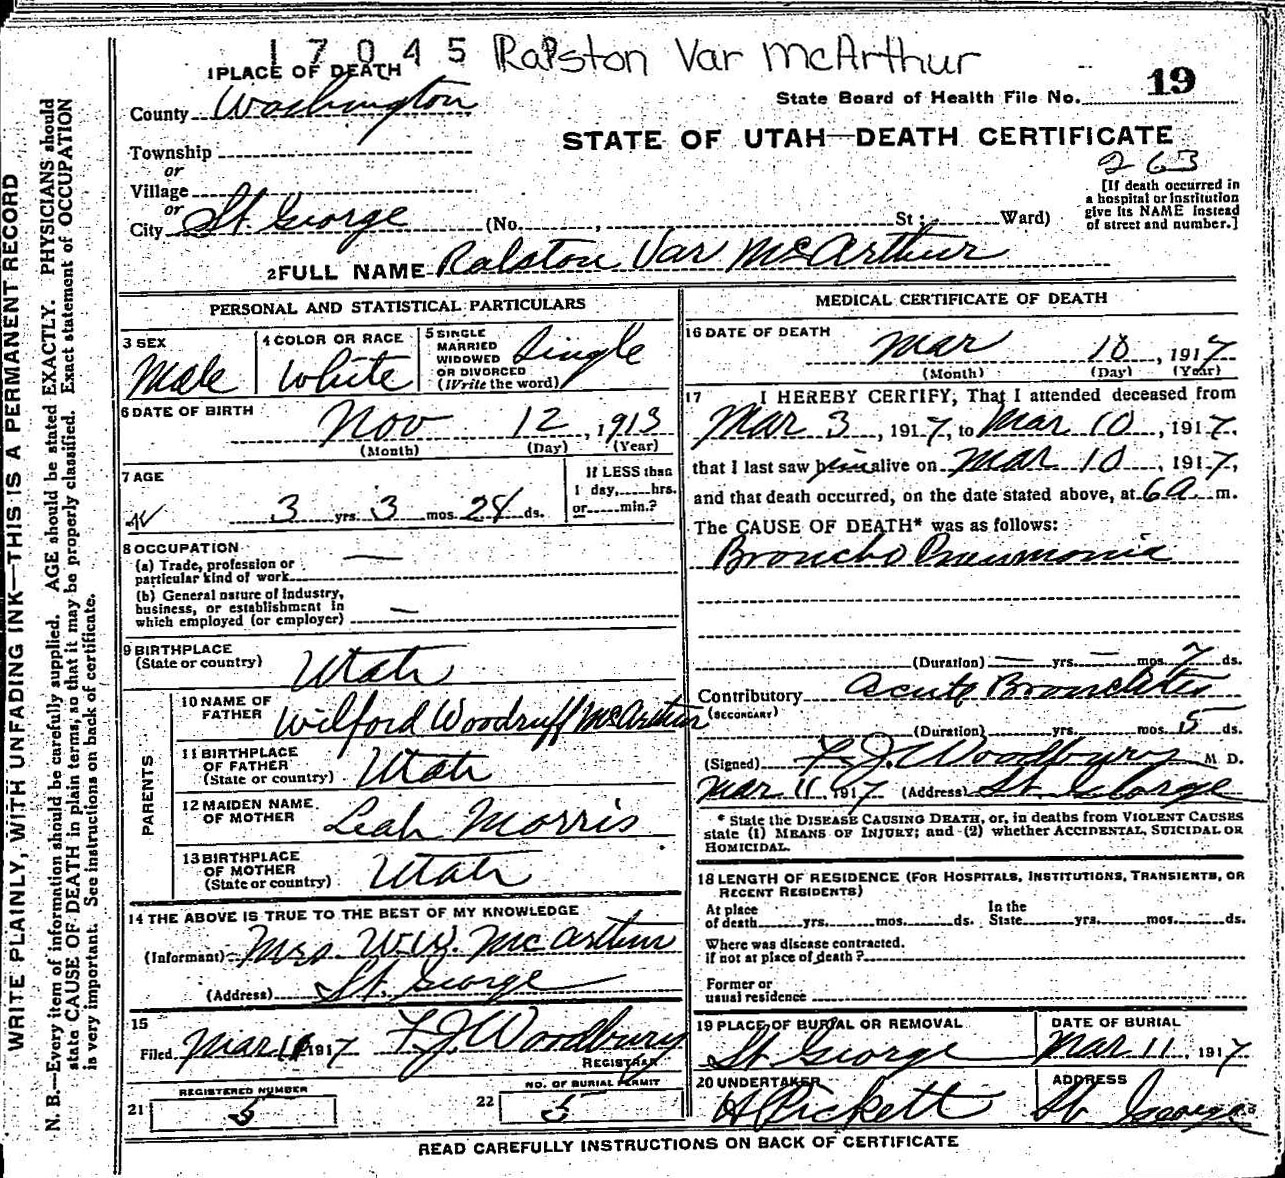 17045 Ralston Var McArthur
1 PLACE OF DEATH
19
County Washington
State Board of Health File No.
STATE OF UTAH—DEATH CERTIFICATE
Township
263
or
Village
or
City St. George (No. , St ; Ward)
[If death occurred in
a hospital or institution
give its NAME instead
of street and number.]
2 FULL NAME Ralston Var McArthur
PERSONAL AND STATISTICAL PARTICULARS
3 SEX
Male
4 COLOR OR RACE
White
5 SINGLE
MARRIED
WIDOWED
OR DIVORCED
(Write the word)
Single
6 DATE OF BIRTH
Nov 12, 1913
(Month) (Day) (Year)
7 AGE
3 yrs. 3 mos. 28 ds.
If LESS than
1 day, hrs.
or min.?
8 OCCUPATION
(a) Trade, profession or
particular kind of work —
(b) General nature of industry,
business, or establishment in
which employed (or employer) —
9 BIRTHPLACE
(State or country) Utah
PARENTS
10 NAME OF
FATHER Wilford Woodruff McArthur
11 BIRTHPLACE
OF FATHER
(State or country) Utah
12 MAIDEN NAME
OF MOTHER Leah Morris
13 BIRTHPLACE
OF MOTHER
(State or country) Utah
14 THE ABOVE IS TRUE TO THE BEST OF MY KNOWLEDGE
(Informant) Mrs W.W. McArthur
(Address) St. George
15
Filed Mar 1917 F.J. Woodbury
REGISTRAR
REGISTERED NUMBER
21 5
NO. OF BURIAL PERMIT
22 5
MEDICAL CERTIFICATE OF DEATH
16 DATE OF DEATH
Mar 10, 1917
(Month) (Day) (Year)
17 I HEREBY CERTIFY, That I attended deceased from
Mar 3, 1917, to Mar 10, 1917,
that I last saw him alive on Mar 10, 1917,
and that death occurred, on the date stated above, at 6 a m.
The CAUSE OF DEATH* was as follows:
Broncho Pneumonia
(Duration) — yrs. — mos. 7 ds.
Contributory Acute Bronchitis
(SECONDARY)
(Duration) yrs. mos. 5 ds.
(Signed) F.J. Woodbury M. D.
Mar 11, 1917 (Address) St. George
* State the DISEASE CAUSING DEATH, or, in deaths from VIOLENT CAUSES
state (1) MEANS OF INJURY; and (2) whether ACCIDENTAL, SUICIDAL OR
HOMICIDAL.
18 LENGTH OF RESIDENCE (FOR HOSPITALS, INSTITUTIONS, TRANSIENTS, OR
RECENT RESIDENTS)
At place
of death yrs. mos. ds.
In the
State yrs. mos. ds.
Where was disease contracted.
if not at place of death?
Former or
usual residence
19 PLACE OF BURIAL OR REMOVAL
St George
DATE OF BURIAL
Mar 11, 1917
20 UNDERTAKER
A Pickett
ADDRESS
St George
READ CAREFULLY INSTRUCTIONS ON BACK OF CERTIFICATE
WRITE PLAINLY, WITH UNFADING INK—THIS IS A PERMANENT RECORD
N. B.—Every item of information should be carefully supplied. AGE should be stated EXACTLY. PHYSICIANS should
state CAUSE OF DEATH in plain terms, so that it may be properly classified. Exact statement of OCCUPATION
is very important. See instructions on back of certificate.